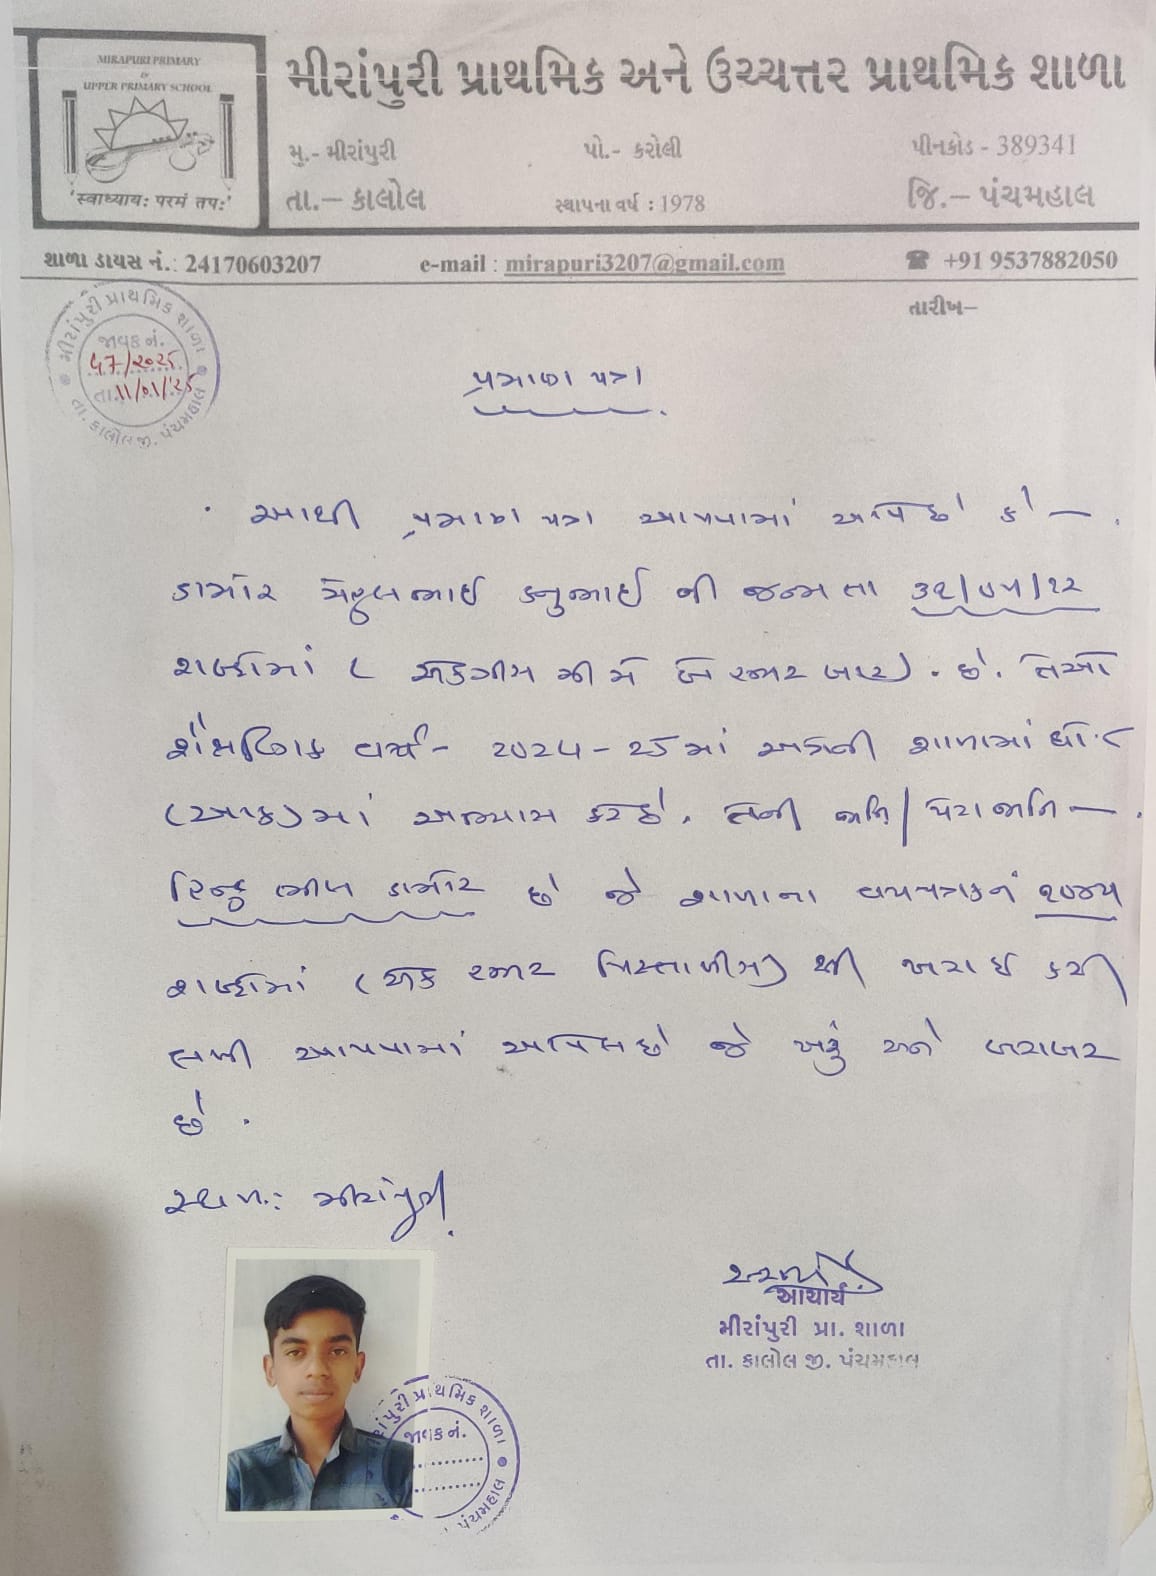 MIRAPURI PRIMARY
&
UPPER PRIMARY SCHOOL
'સ્વાધ્યાયઃ પરમં તપઃ'
મીરાંપુરી પ્રાથમિક અને ઉચ્ચત્તર પ્રાથમિક શાળા
મુ.- મીરાંપુરી પો.- કરોલી પીનકોડ - 389341
તા.– કાલોલ સ્થાપના વર્ષ : 1978 જિ.– પંચમહાલ
શાળા ડાયસ નં.: 24170603207 e-mail : mirapuri3207@gmail.com ☎ +91 9537882050
તારીખ–
મીરાંપુરી પ્રાથમિક શાળા
જાવક નં.
47/2025
તા.11/01/'25
તા. કાલોલ જી. પંચમહાલ
પ્રમાણ પત્ર
આથી પ્રમાણ પત્ર આપવામાં આવે છે કે –
ડામોર મેહુલભાઈ કનુભાઈ ની જન્મ તા ૩૧/૦૫/૧૨
શબ્દોમાં ( એકત્રીસ મી મે બે હજાર બાર) . છે. તેઓ
શૈક્ષણિક વર્ષ - ૨૦૨૪ - ૨૫ માં અત્રેની શાળામાં ધો. ૮
(આઠ) માં અભ્યાસ કરે છે. તેની જાતિ / પેટાજાતિ –
હિન્દુ ભીલ ડામોર છે જે શાળાના વયપત્રક નં ૧૦૪૫
શબ્દોમાં ( એક હજાર પિસ્તાળીસ) થી ખરાઈ કરી
લખી આપવામાં આવેલ છે જે ખરું અને બરાબર
છે .
સ્થળ : મીરાંપુરી
આચાર્ય
મીરાંપુરી પ્રા. શાળા
તા. કાલોલ જી. પંચમહાલ
મીરાંપુરી પ્રાથમિક શાળા
જાવક નં.
પંચમહાલ